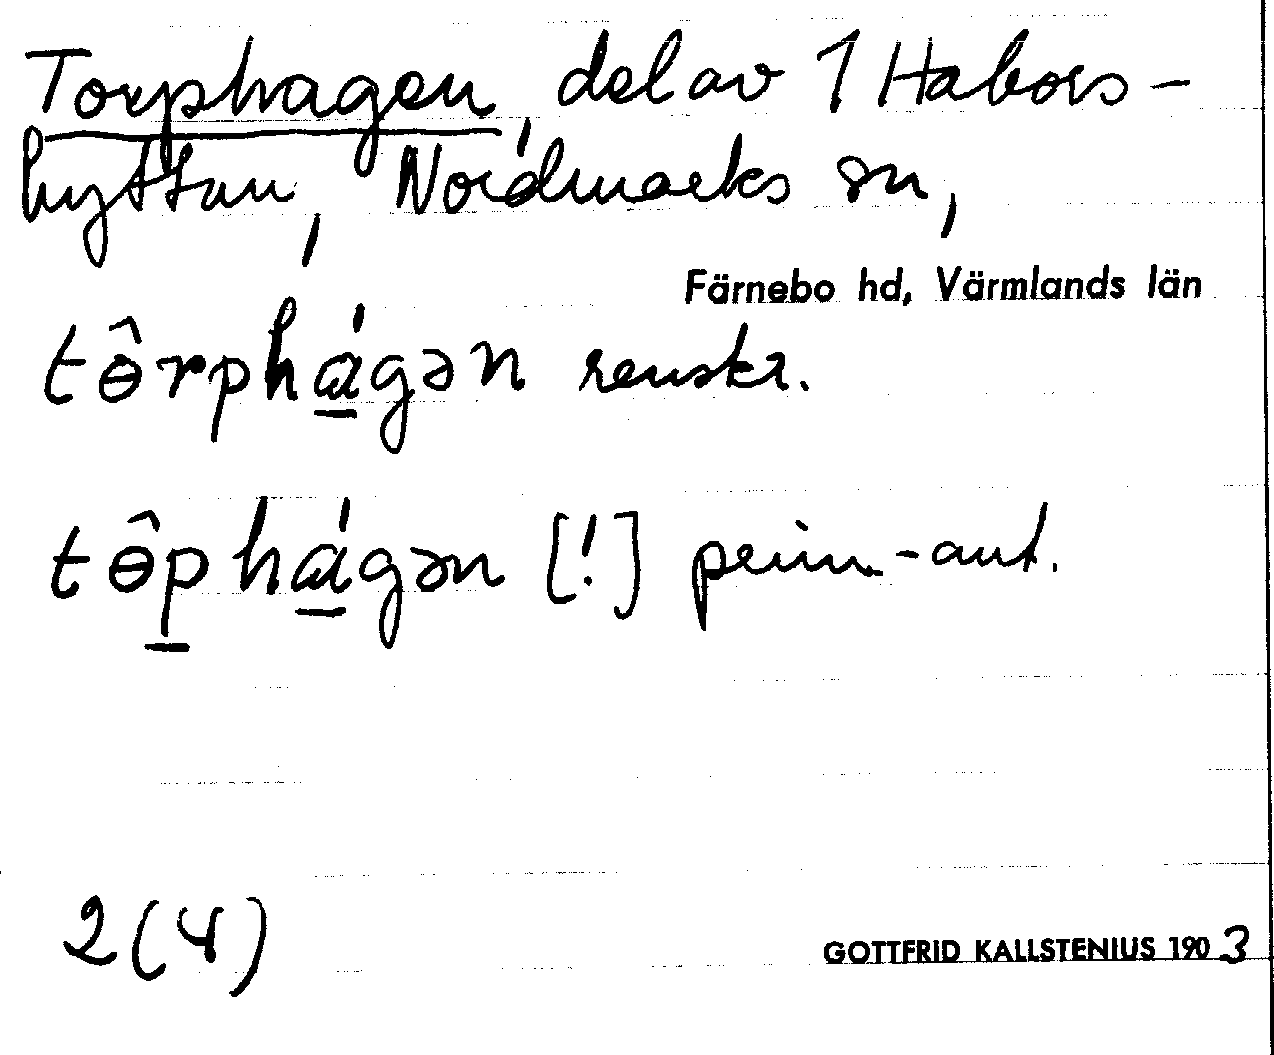 Torphagen, del av 1 Habors-
hyttan, Nordmarks sn,
Färnebo hd, Värmlands län
tɵ̂rphágən renskr.
tɵ̂phágən [!] prim.-ant.
2(4)
GOTTFRID KALLSTENIUS 1903